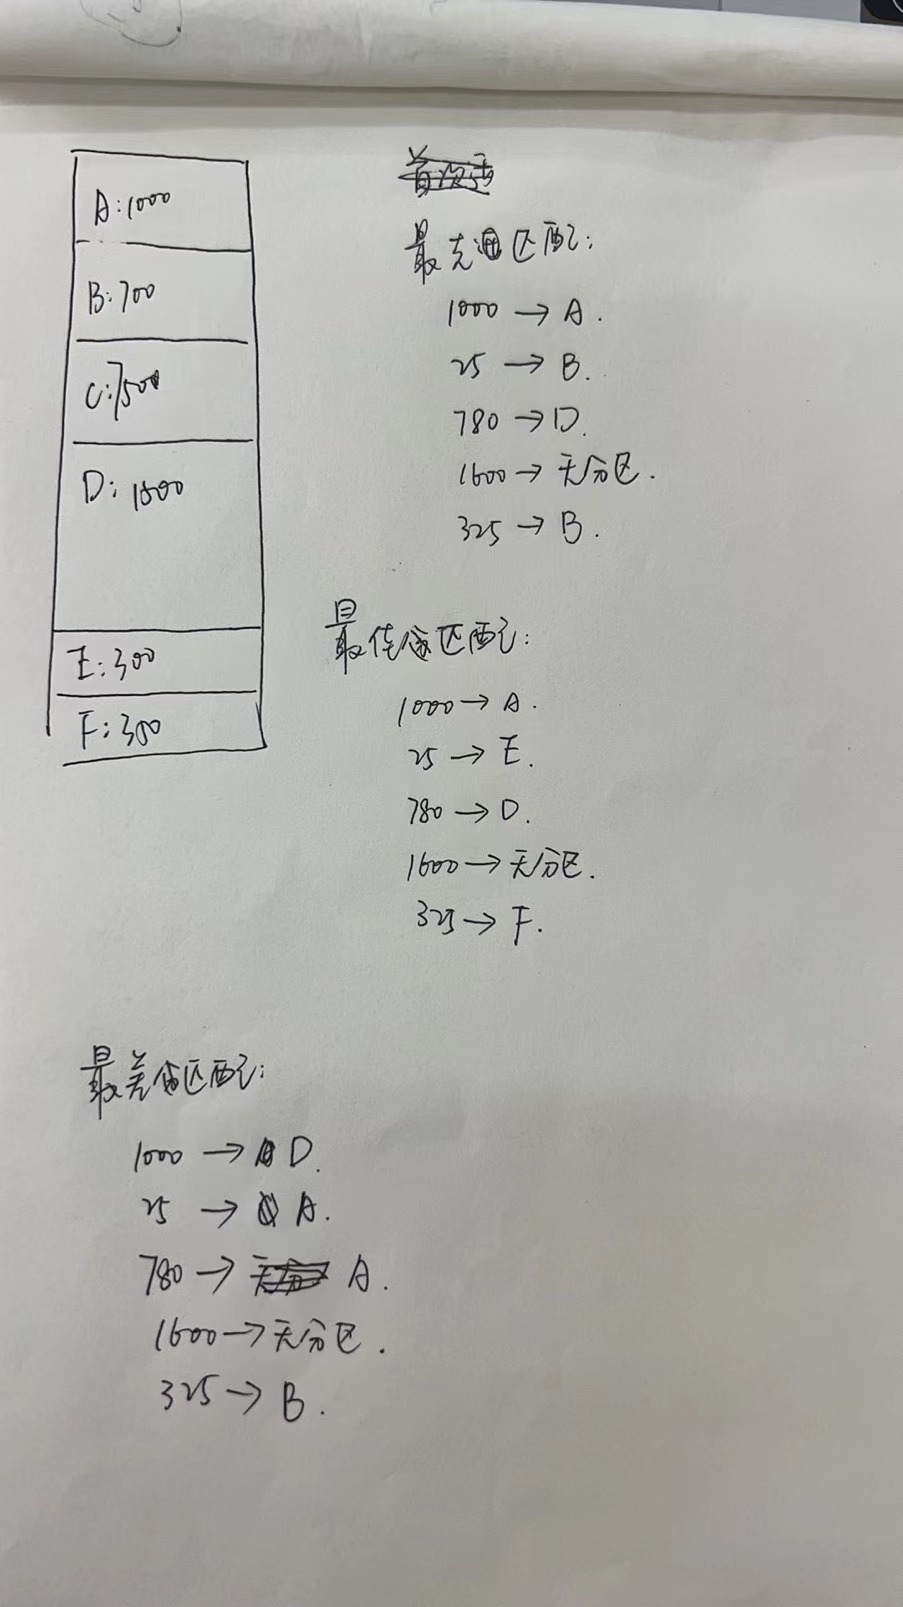 A:1000
B:700
C:7500
D:1500
E:300
F:300
最先匹配:
1000→A.
25→B.
780→D.
1600→无分区.
325→B.
最佳匹配:
1000→A.
25→E.
780→D.
1600→无分区.
325→F.
最差匹配:
1000→D.
25→A.
780→A.
1600→无分区.
325→B.